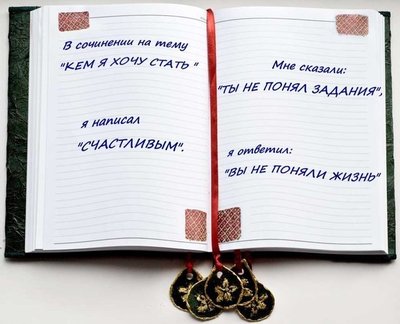 В сочинении на тему
"КЕМ Я ХОЧУ СТАТЬ "
я написал
"СЧАСТЛИВЫМ".
Мне сказали:
"ТЫ НЕ ПОНЯЛ ЗАДАНИЯ",
я ответил:
"ВЫ НЕ ПОНЯЛИ ЖИЗНЬ"